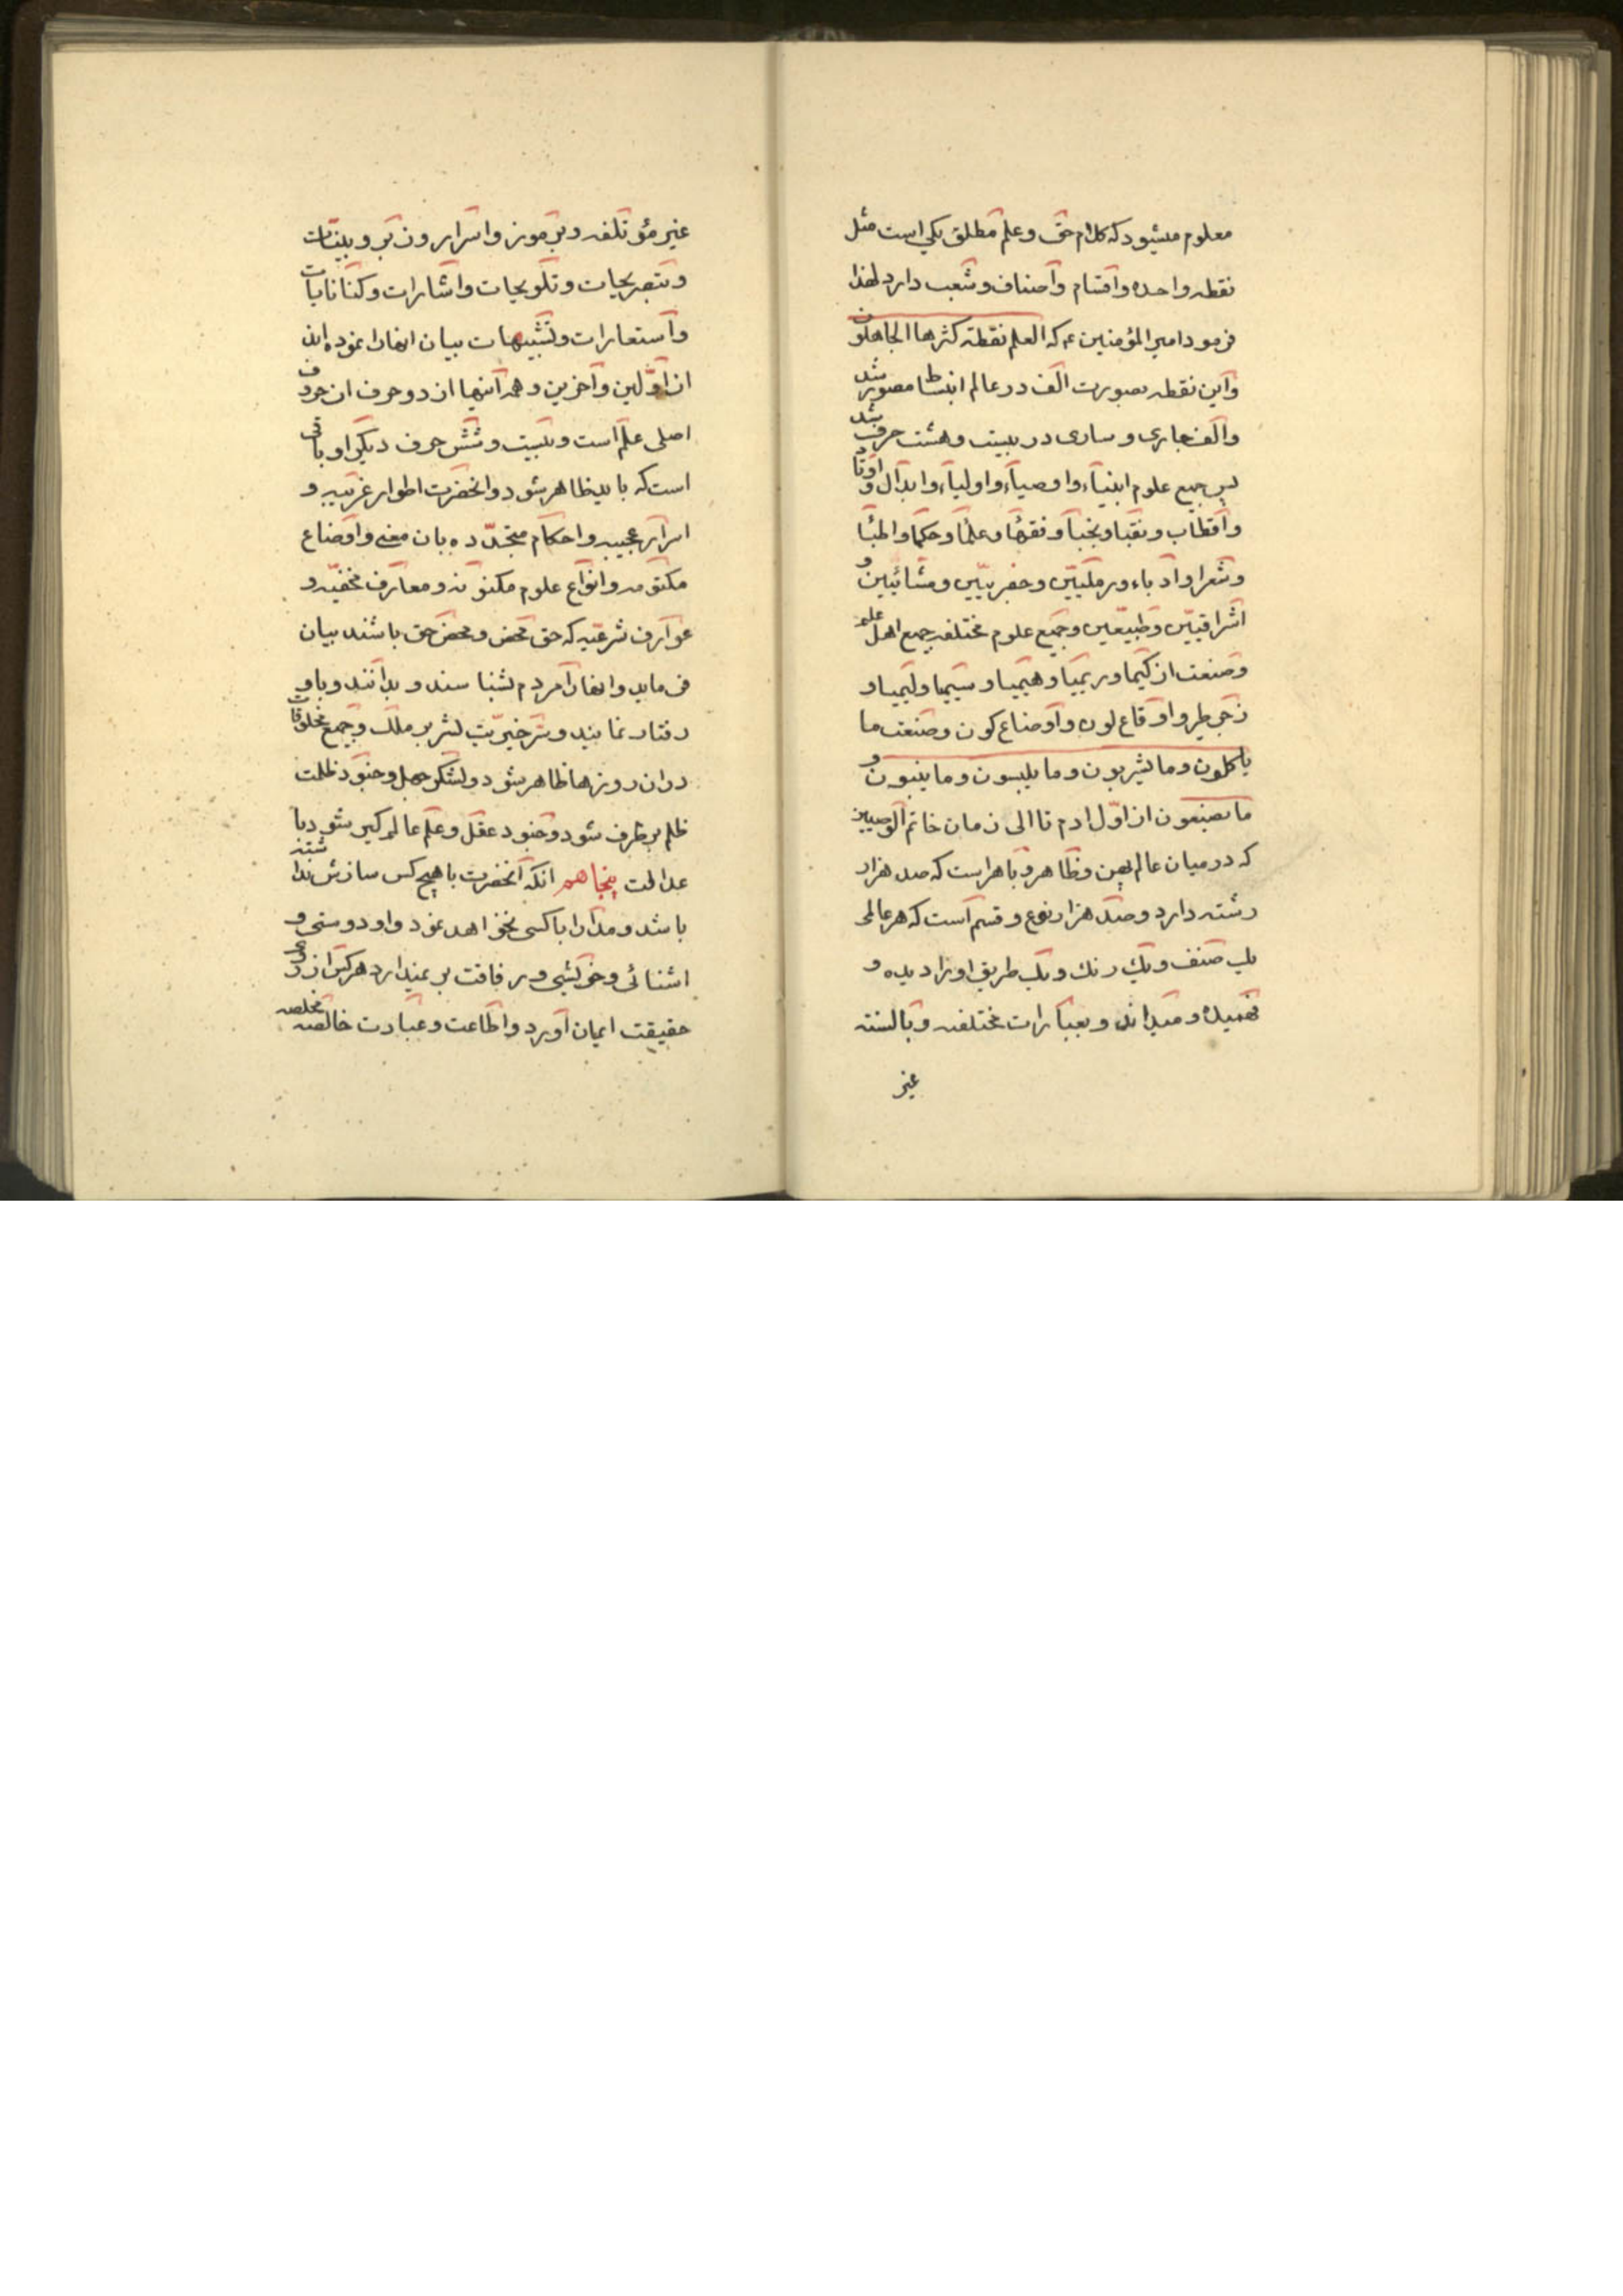 معلوم میشود که کلام حق و علم مطلق یکی است مثل
نقطه واحده و اقسام و اصناف و شعب دارد لهذا
فرمود امیر المؤمنین ع که العلم نقطة کثرها الجاهلون
و این نقطه بصورت الف در عالم انبساط مصور شد
و الف جاری و ساری در بیست و هشت حرف شد
پس جمیع علوم انبیاء و اوصیاء و اولیاء و ابدال و اوتاد
و اقطاب و نقبا و نجبا و فقها و علما و حکما و اطبا
و شعرا و ادباء و رملیین و جفریین و مشائیین و
اشراقیین و طبیعیین و جمیع علوم مختلفه جمیع اهل علم
و صنعت از کیمیا و ریمیا و هیمیا و سیمیا و لیمیا و
زجر طیر و اوقاع لون و اوضاع کون و صنعت ما
یاکلون و ما یشربون و ما یلبسون و ما یبنون و
ما یصنعون از اول ادم تا الی زمان خاتم الوصیین
که در میان عالم بهین و ظاهر و باهر است که صد هزار
رشته دارد و صد هزار نوع و قسم است که هر عالمی
یک صنف و یک رنک و یک طریق او را دیده و
فهمیده و میداند و بعبارات مختلفه و بالسنه
غیر
غیر مؤتلفه و برموز و اسرار و زبر و بینات
و تصریحات و تلویحات و اشارات و کنایات
و استعارات و تشبیهات بیان انها را نموده اند
از اولین و اخرین و همه اینها از دو حرف از حروف
اصلی علم است و بیست و شش حرف دیگر او باقی
است که باید ظاهر شود و انحضرت اطوار غریبه و
اسرار عجیبه و احکام متجدده بان معنی و اوضاع
مکتومه و انواع علوم مکنونه و معارف مخفیه و
عوارف شرعیه که حق محض و محض حق باشند بیان
فرماید و انها را مردم بشناسند و بدانند و باو
رفتار نمایند و سر خیریت بشر بر ملک و جمیع مخلوقات
در ان روزها ظاهر شود و لشکر جهل و جنود ظلمت
ظلم بر طرف شود و جنود عقل و علم عالم کیر شود با
عدالت پنجاهم انکه انحضرت با هیچ کس سازش نداشته
باشد و مدارا با کسی نخواهد نمود و او دوستی و
اشنائی و خویشی و رفاقت بر نمیدارد هر کس از روی
حقیقت ایمان اورد و اطاعت و عبادت خالصه مخلصه